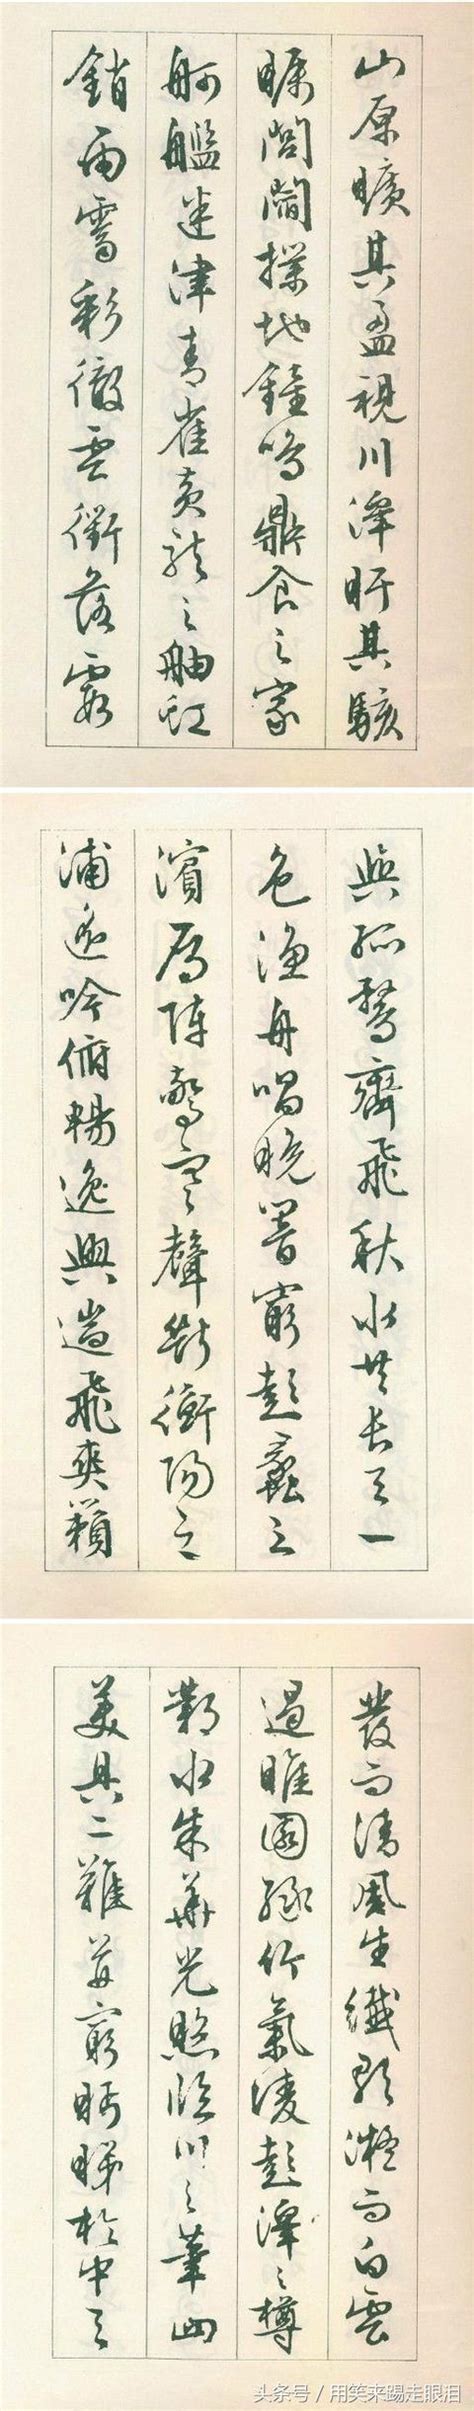 山原曠其盈視川澤盱其駭
矚閭閻撲地鐘鳴鼎食之家
舸艦迷津青雀黃龍之舳虹
銷雨霽彩徹雲衢落霞
與孤鶩齊飛秋水共長天一
色漁舟唱晚響窮彭蠡之
濱雁陣驚寒聲斷衡陽之
浦遙吟俯暢逸興遄飛爽籟
發而清風生纖歌凝而白雲
遏睢園綠竹氣凌彭澤之樽
鄴水朱華光照臨川之筆四
美具二難並窮眄睇於中天
头条号 / 用笑来踢走眼泪